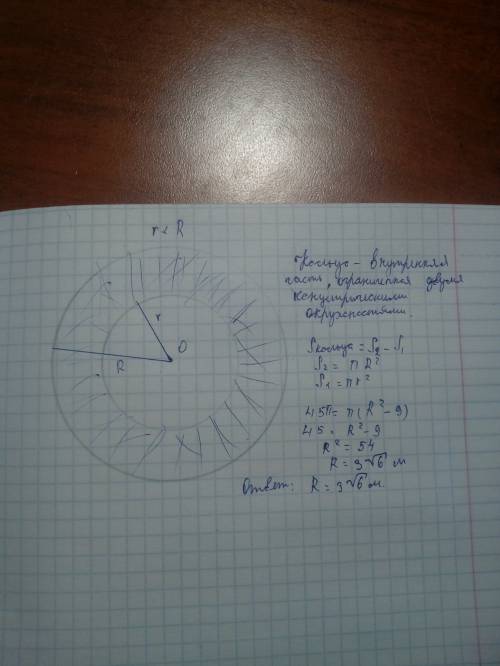 r < R
Кольцо - внутренняя
часть, ограниченная двумя
концентрическими
окружностями.
r
O
R
Sкольца = S2 - S1
S2 = πR²
S1 = πr²
45π = π(R² - 9)
45 = R² - 9
R² = 54
R = 3√6 м
Ответ: R = 3√6 м.